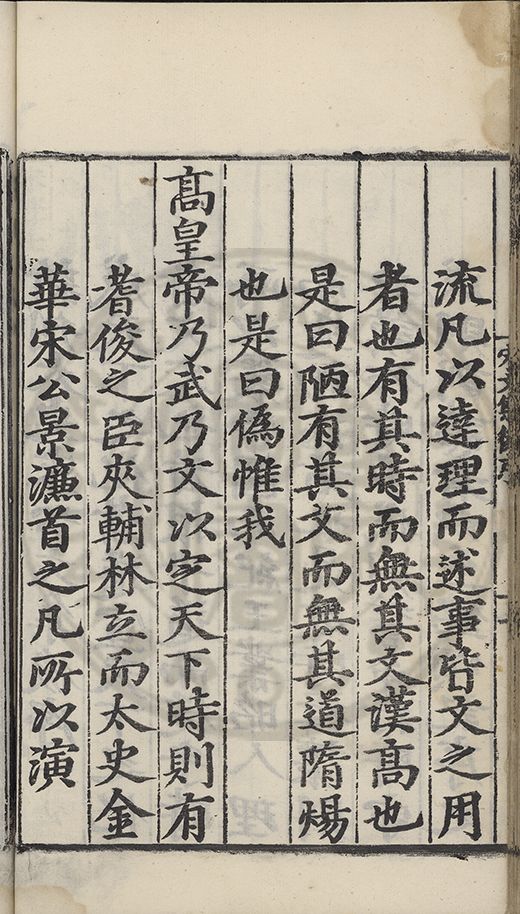 流凡以達理而述事皆文之用
者也有其時而無其文漢高也
是曰陋有其文而無其道隋煬
也是曰偽惟我
高皇帝乃武乃文以定天下時則有
耆俊之臣夾輔林立而太史金
華宋公景濂首之凡所以演